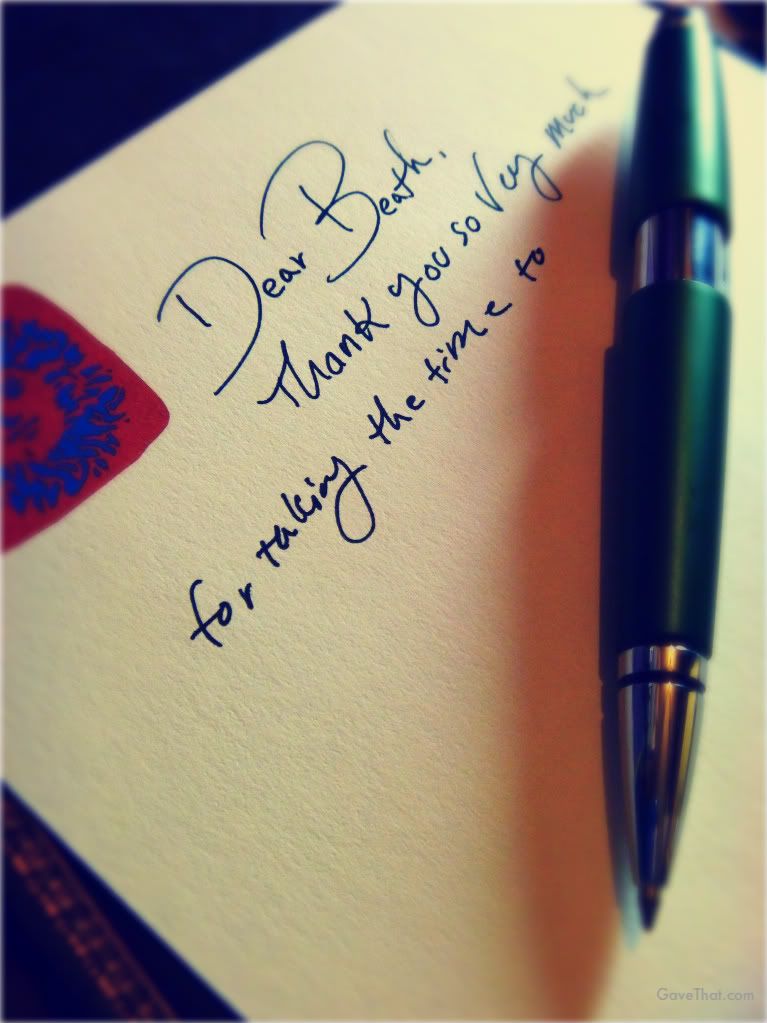 Dear Beath,
Thank you so very much
for taking the time to
GaveThat.com